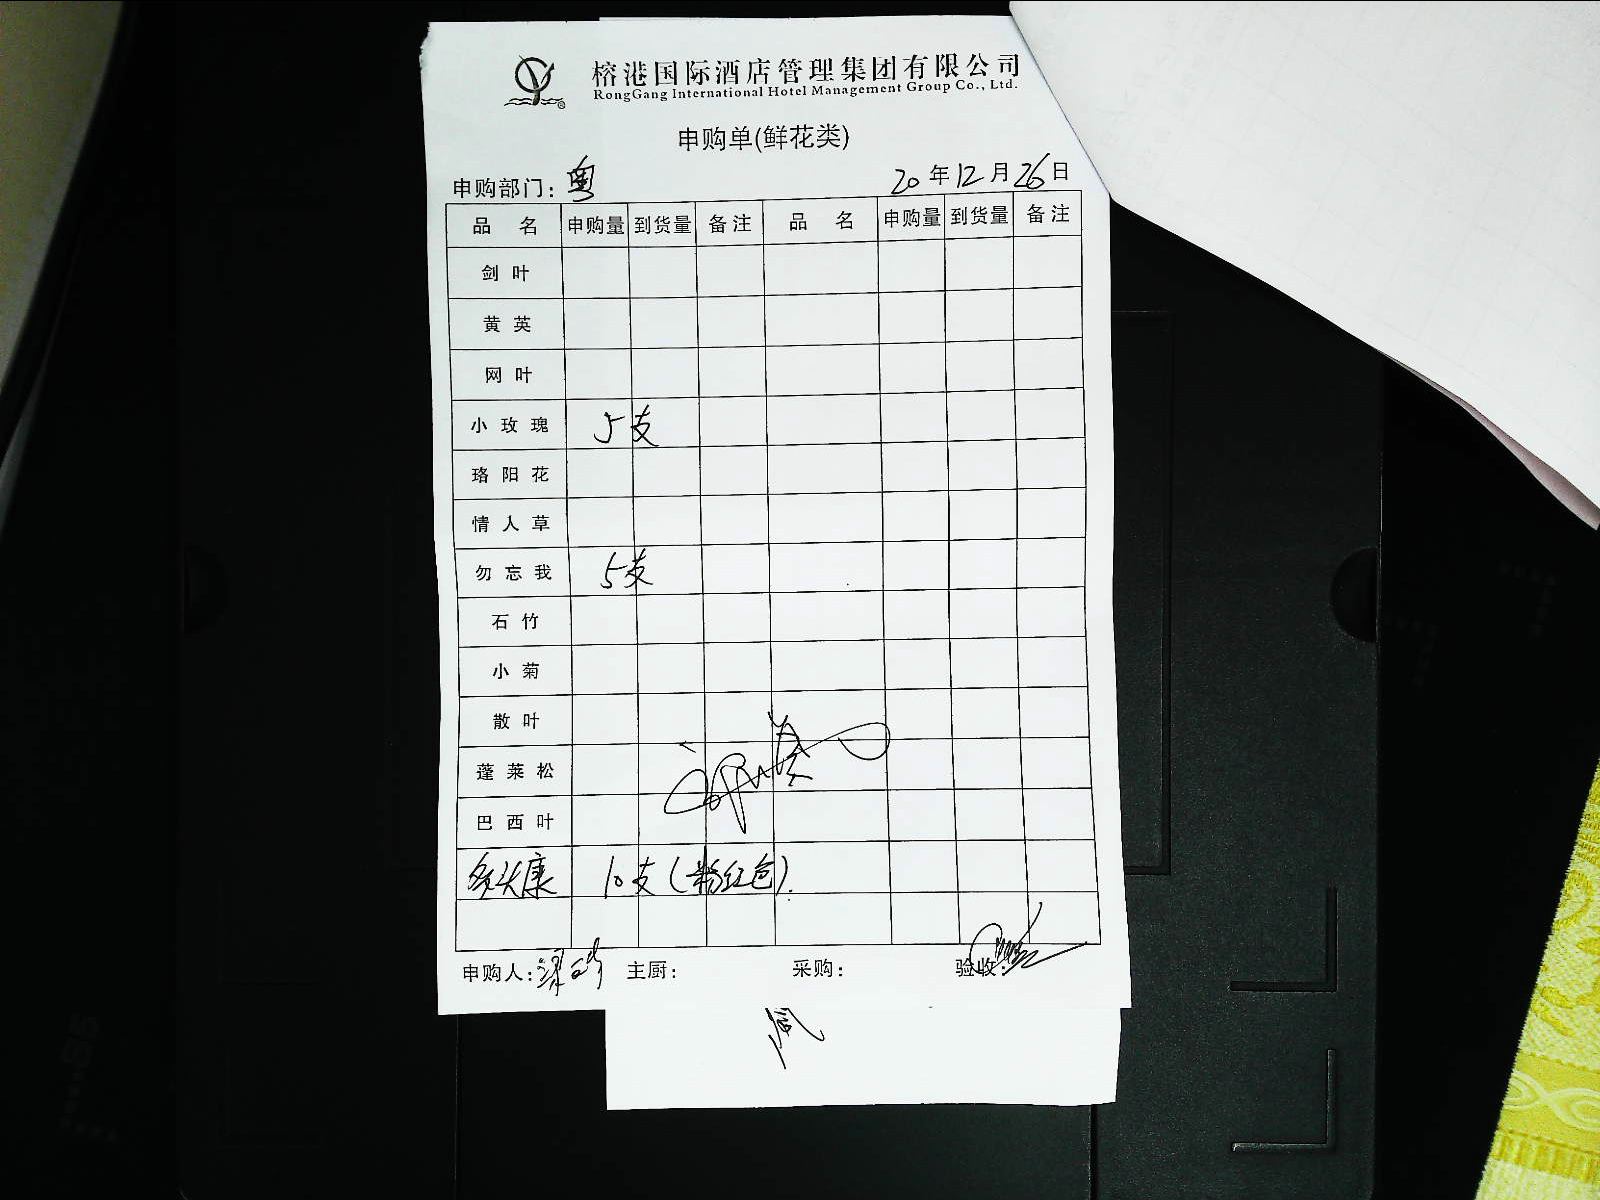 榕港国际酒店管理集团有限公司
RongGang International Hotel Management Group Co., Ltd.
申购单(鲜花类)
申购部门：粤 20年12月26日
品 名 申购量 到货量 备注 品 名 申购量 到货量 备注
剑叶
黄英
网叶
小玫瑰 5支
珞阳花
情人草
勿忘我 5支
石竹
小菊
散叶
蓬莱松
巴西叶
多头康 10支(粉红色).
申购人: 主厨: 采购: 验收: